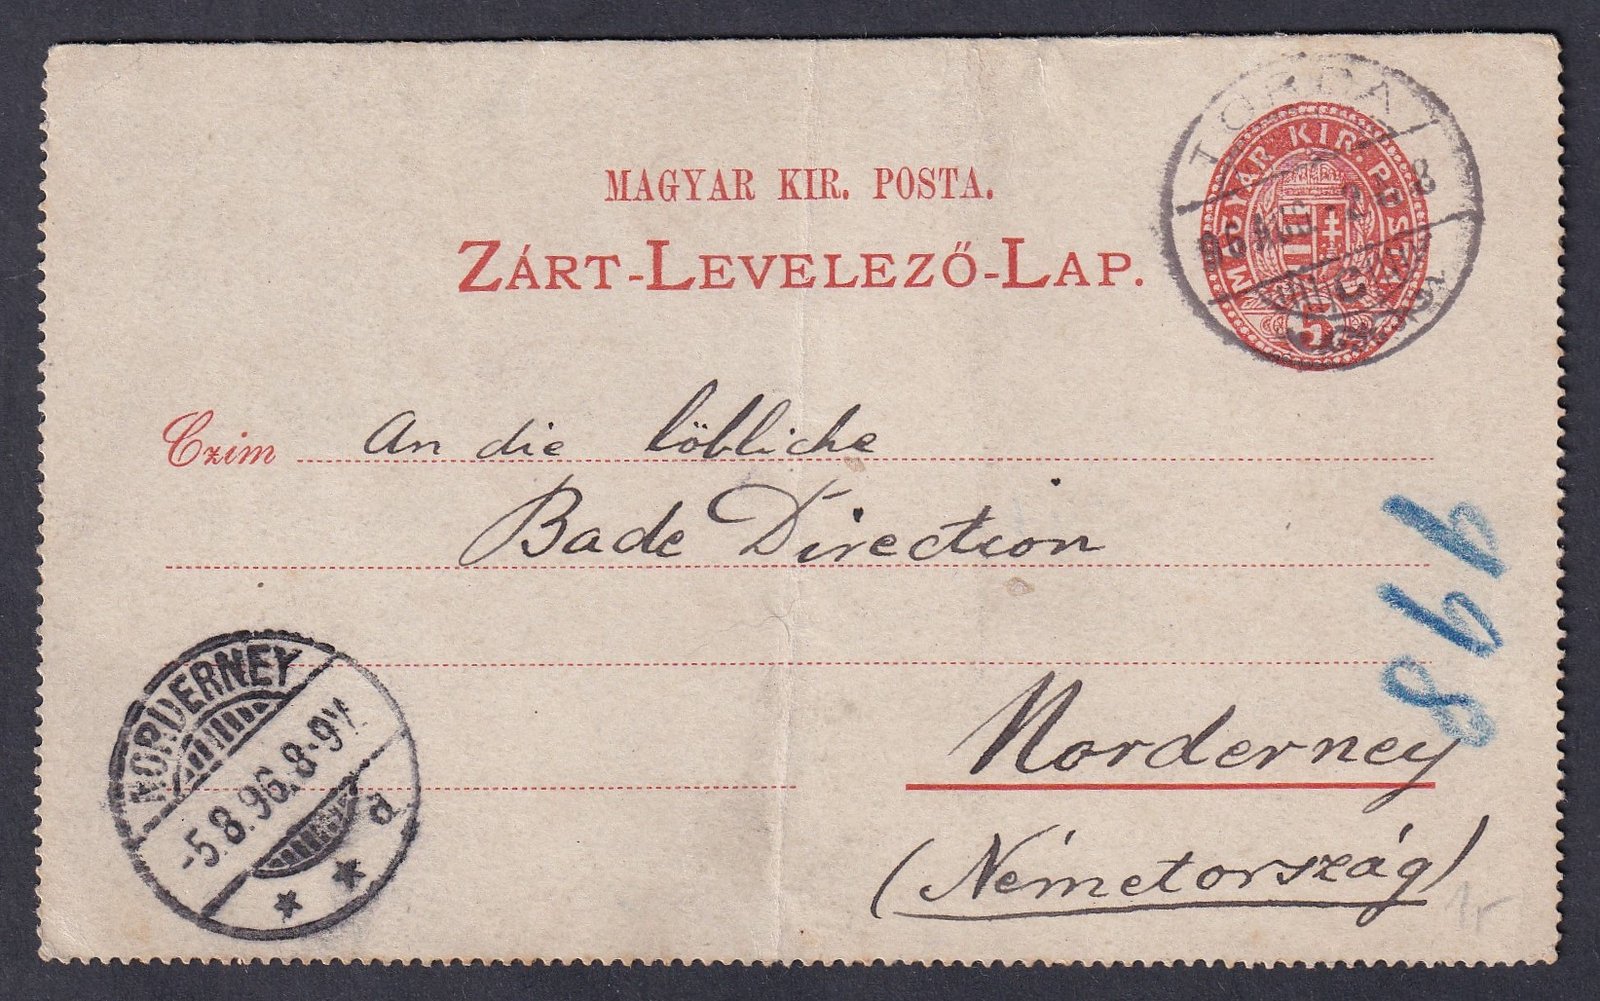 MAGYAR KIR. POSTA.
ZÁRT-LEVELEZŐ-LAP.
TORDA
96 AUG - 2 5 8
C
MAGYAR KIR. POSTA
5
Czim An die löbliche
Bade Direction
Norderney
(Németország)
NORDERNEY
-5.8.96.8-9V.
a
1r